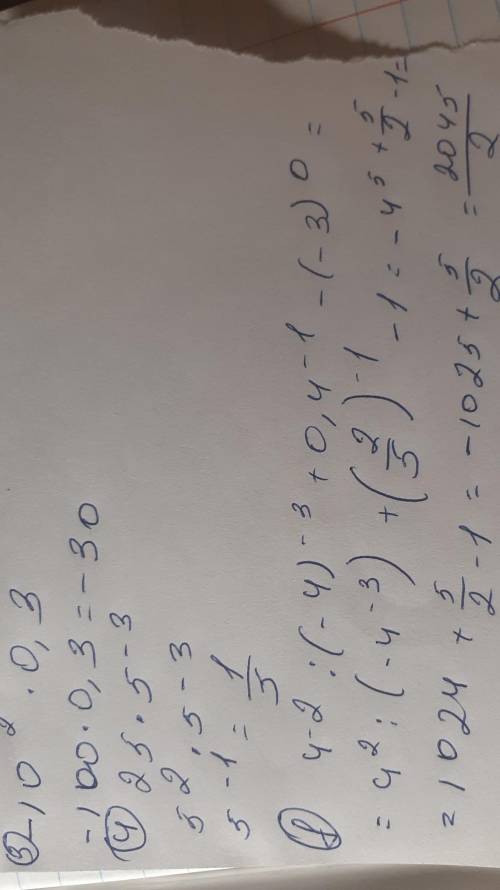 ③ -10² · 0,3
-100 · 0,3 = -30
④ 25 · 5-3
5 2 · 5-3
5 -1 = 1/5
4-2 : (-4)-3 + 0,4-1 - (-3)0 =
= 4² : (-4-3) + (2/5)-1 - 1 = -4⁵ + 5/2 - 1 =
= 1024 + 5/2 - 1 = -1025 + 5/2 = 2045/2